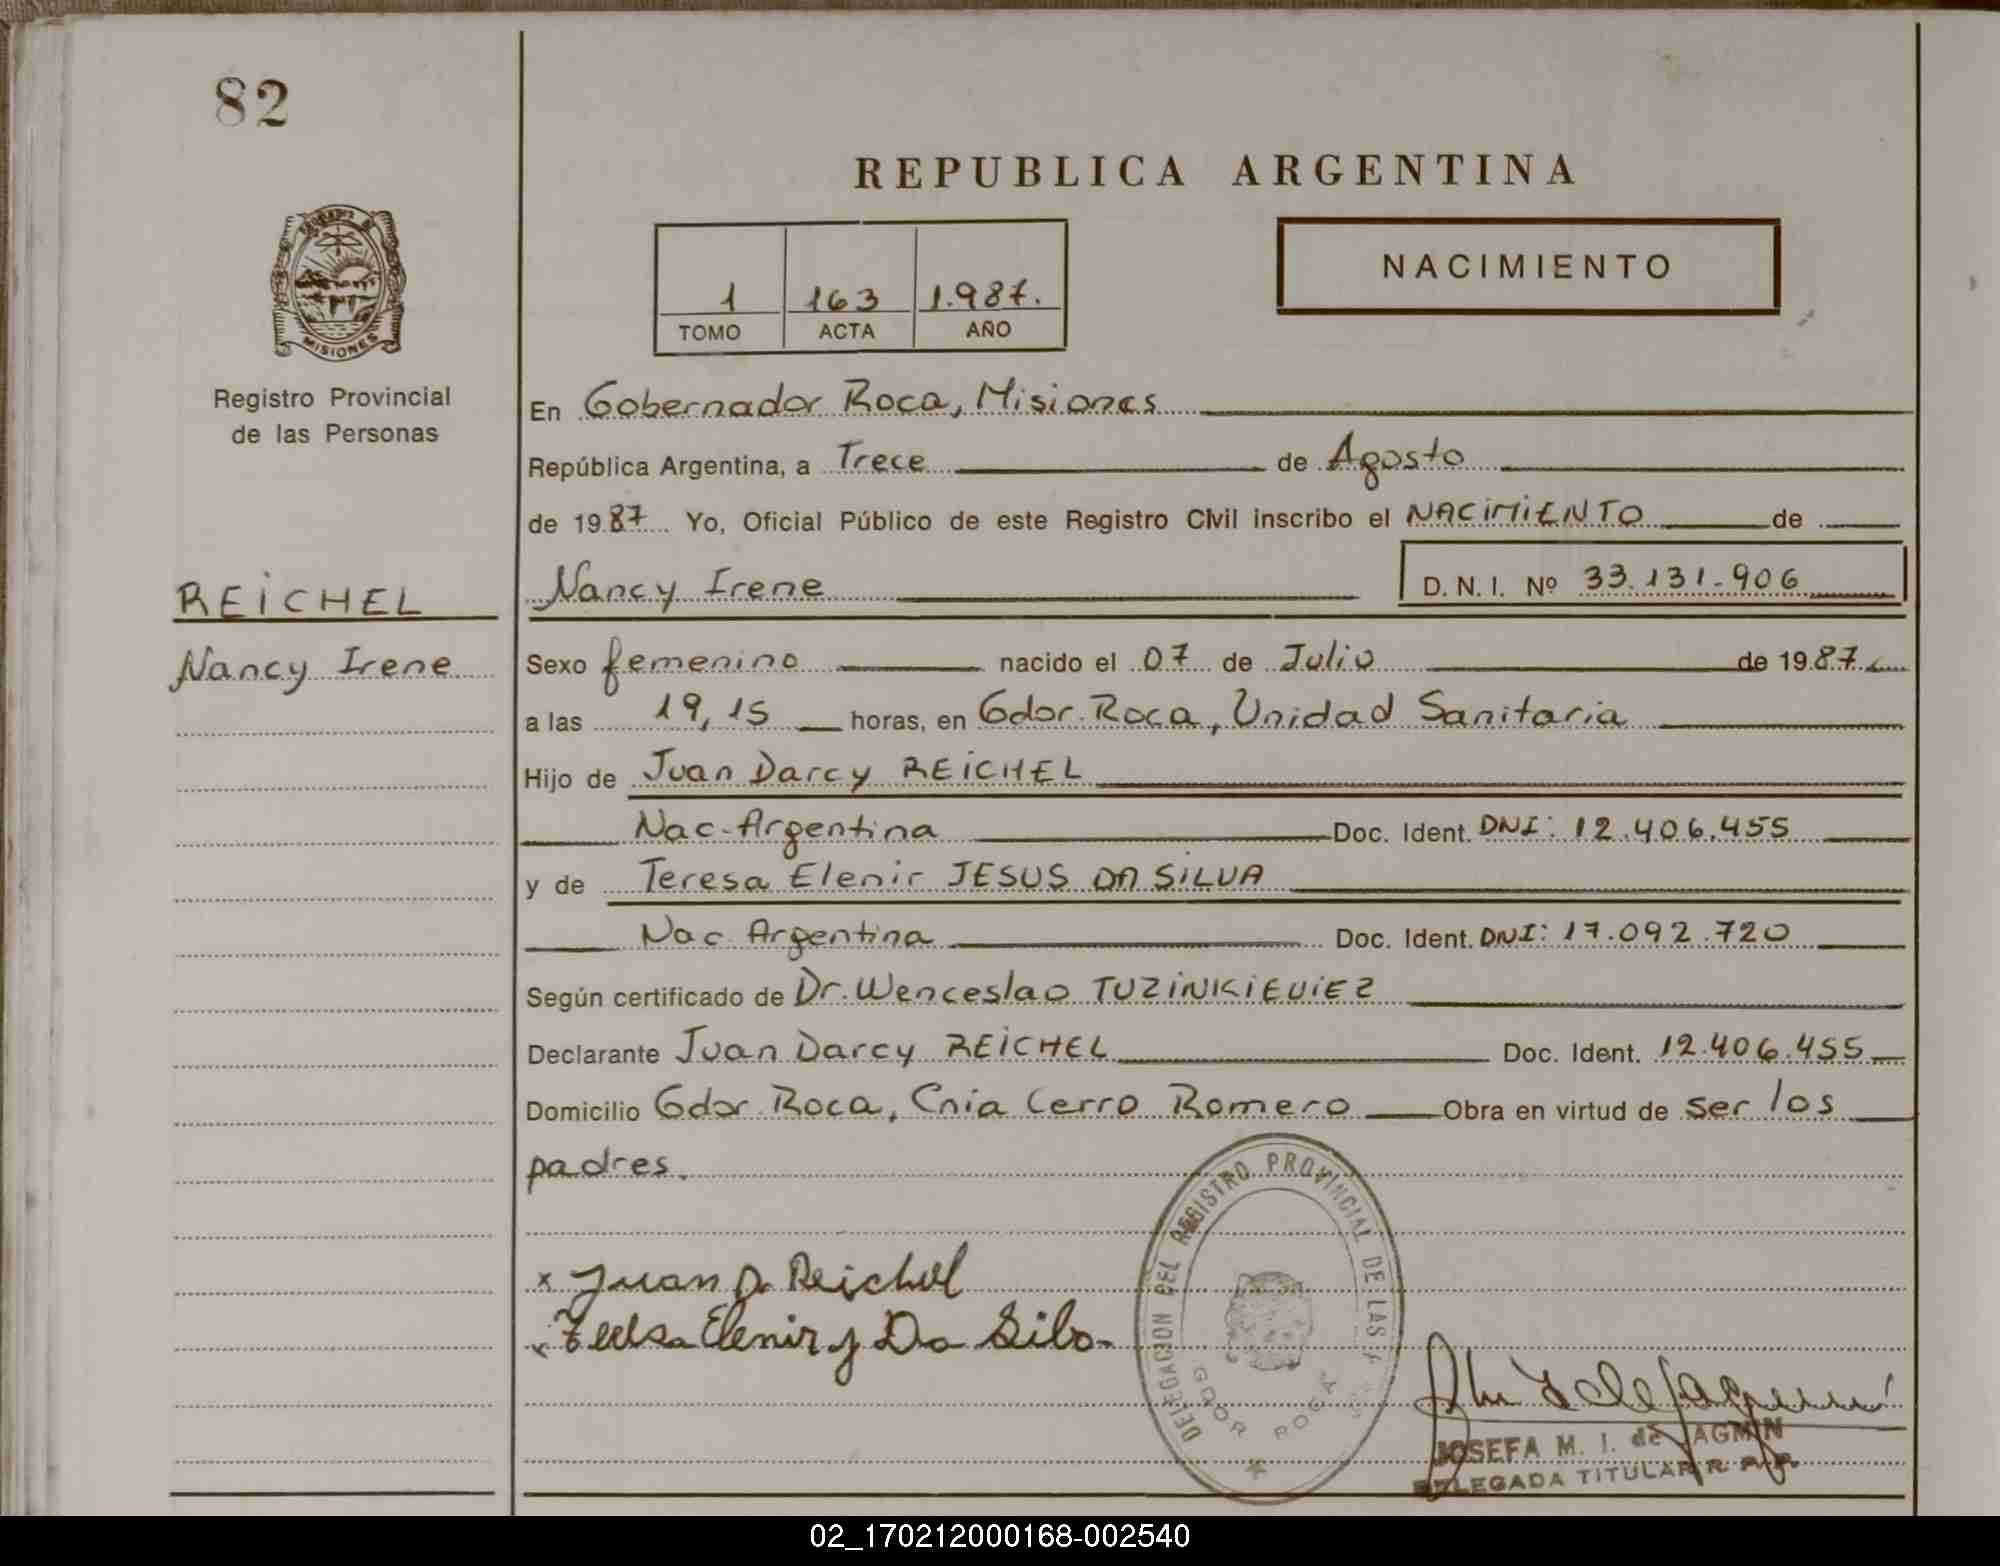 82
REPUBLICA ARGENTINA
NACIMIENTO
1 163 1.987.
TOMO ACTA AÑO
MISIONES
Registro Provincial
de las Personas
En Gobernador Roca, Misiones
República Argentina, a Trece de Agosto
de 1987 Yo, Oficial Público de este Registro Civil inscribo el NACIMIENTO de
REICHEL
Nancy Irene D. N. I. Nº 33.131.906
Nancy Irene
Sexo femenino nacido el 07 de Julio de 1987
a las 19,15 horas, en Gdor. Roca, Unidad Sanitaria
Hijo de Juan Darcy REICHEL
Nac. Argentina Doc. Ident. DNI: 12.406.455
y de Teresa Elenir JESUS DA SILVA
Nac. Argentina Doc. Ident. DNI: 17.092.720
Según certificado de Dr. Wenceslao TUZINKIEVIEZ
Declarante Juan Darcy REICHEL Doc. Ident. 12.406.455
Domicilio Gdor. Roca, Cnia Cerro Romero Obra en virtud de ser los
padres.
DELEGACION DEL REGISTRO PROVINCIAL DE LAS
GDOR ROCA
x Juan D. Reichel
x Elenir j Da
JOSEFA M. I. de
DELEGADA TITULAR R. P. P.
02_170212000168-002540